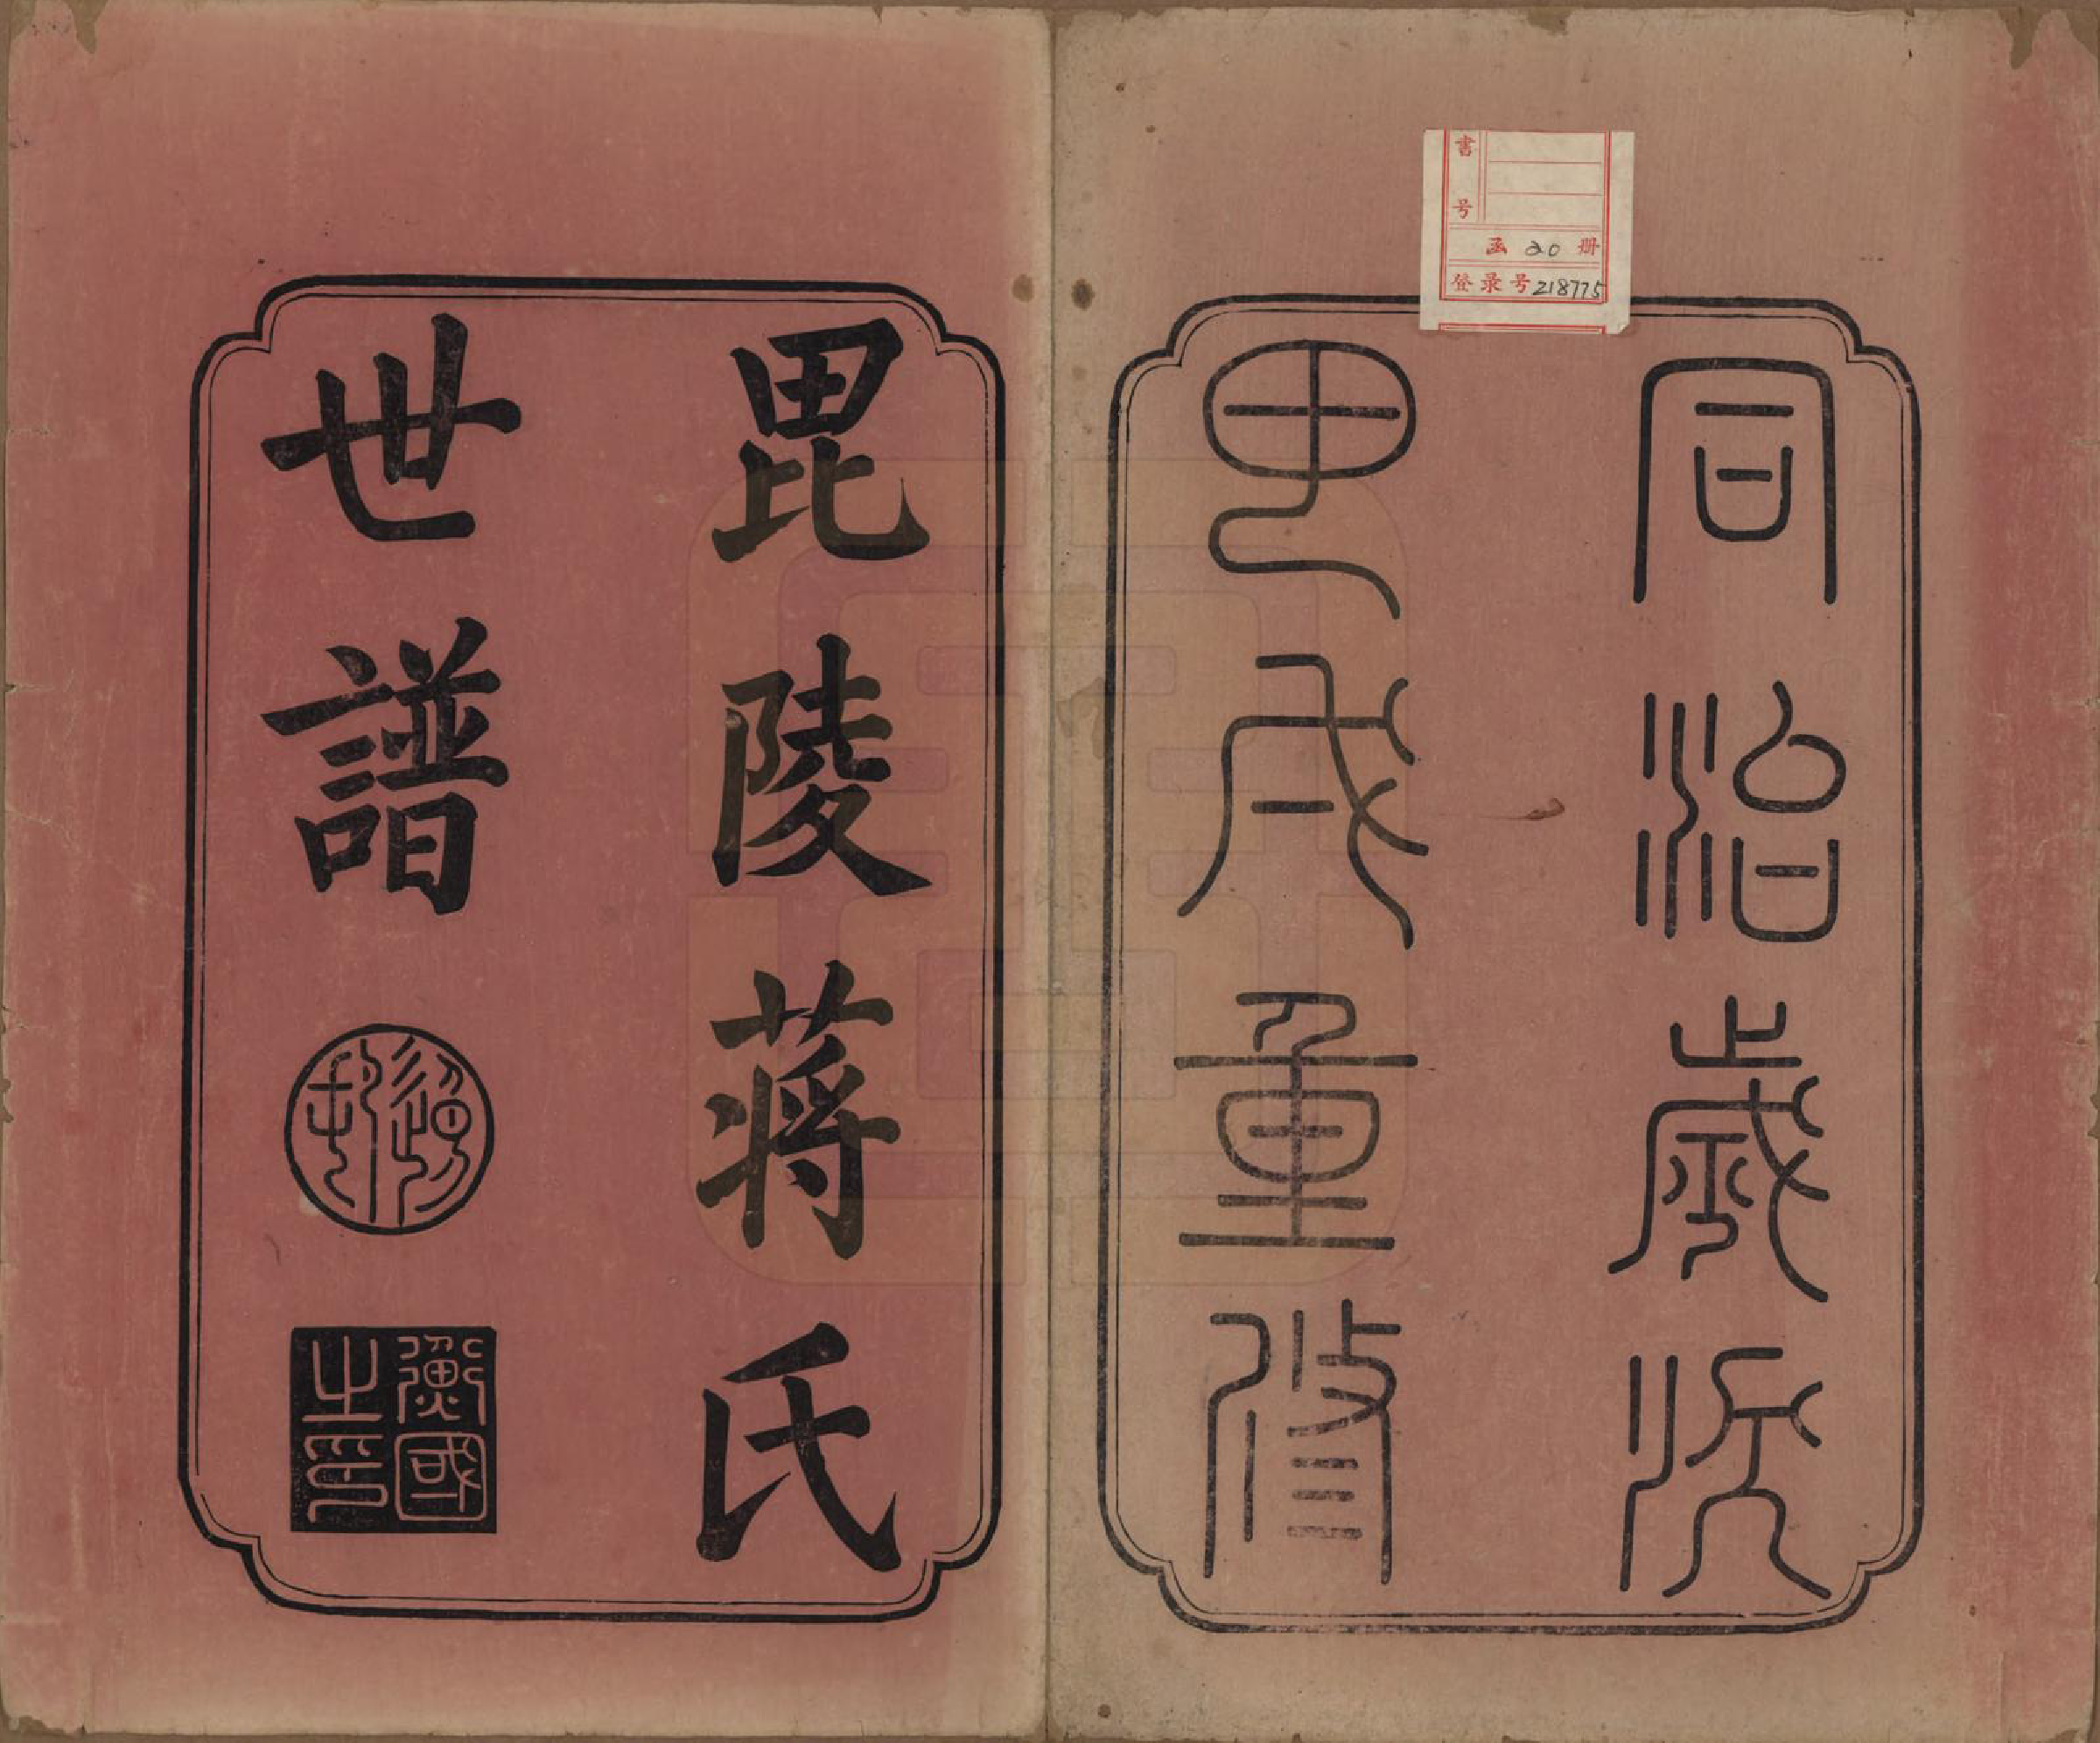 書号
函 20 册
登录号218775
同治歲次
甲戌重修
毘陵蔣氏
世譜
衡國之印